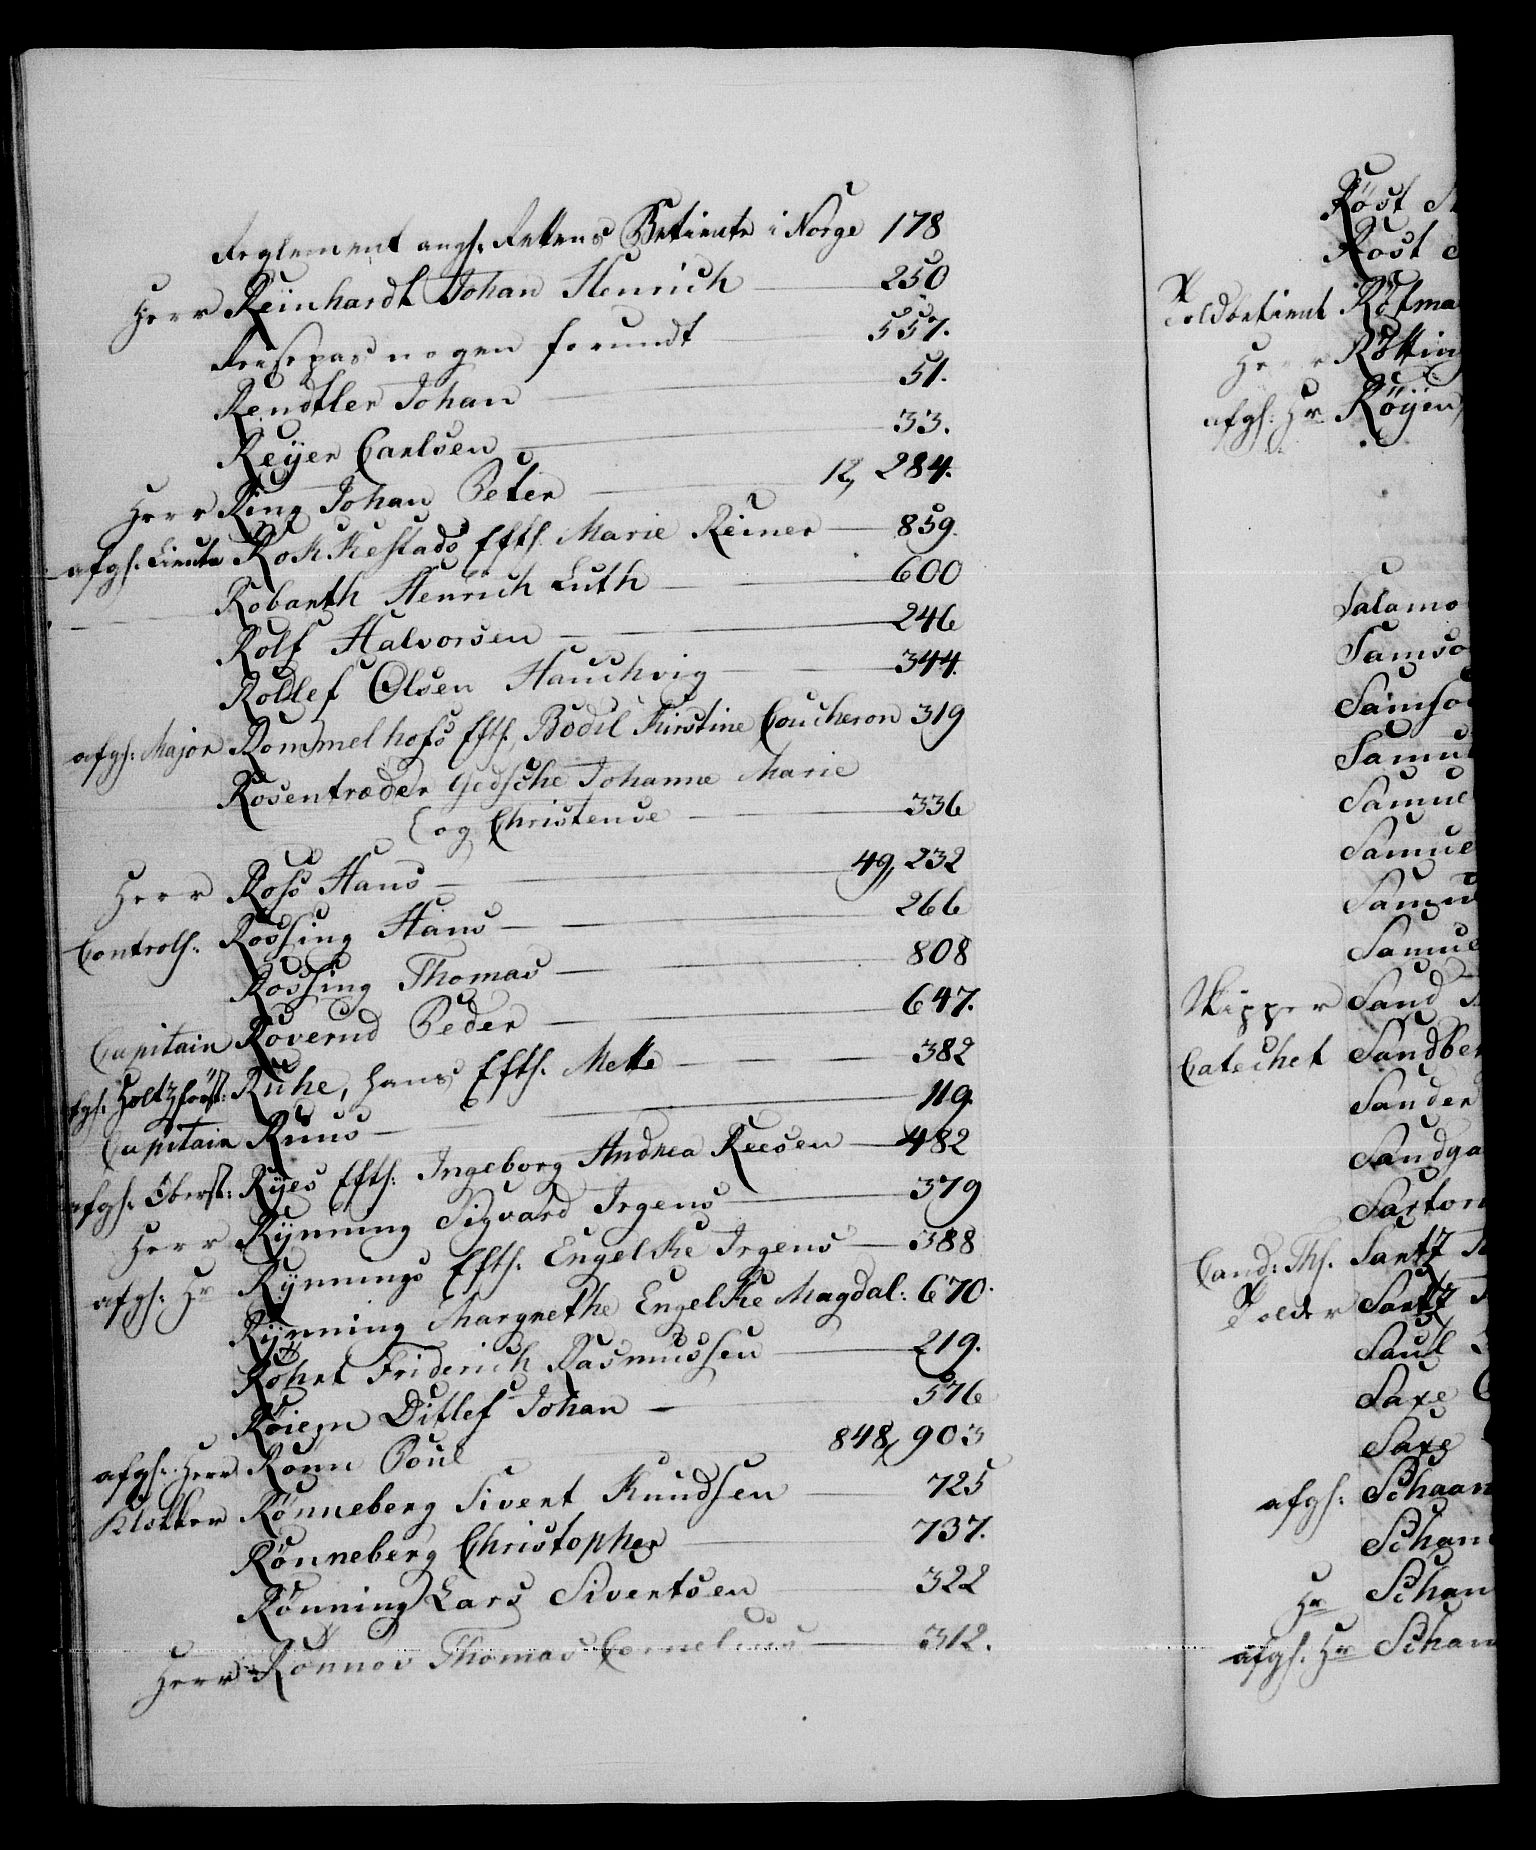 Reglement angh: Rettens Betiente i Norge 178
Herr Reinhardt Johan Henrich 250
Reisepas nogen forundt 557.
Rendtler Johan 51.
Reÿer Carlsen 33.
Herr Ring Johan Peter 12, 284.
afgh. Lieutn Rokkestads Efth. Marie Reimer 859.
Robarth Henrich Luth 600
Rolf Halvorsen 246
Rollef Olsen Hauchvig 344.
afgh: Major Rommelhofs Efth. Bodil Kirstine Coucheron 319
Rosentræder Godsche Johanne Marie
og Christense 336
Herr Ross Hans 49, 232
Controlh: Rossing Hans 266
Rossing Thomas 808
Capitain Roverud Peder 647.
afgh: Holtzförst: Ruhe, Hans Efth. Mette 382
Capitain Ruus 119.
afgh. Oberst: Rÿes Efth: Ingeborg Andrea Reesen 482
Herr Rÿnning Sigvard Irgens 379
afgh. Hr Rÿnnings Efth. Engelke Irgens 388
Rÿnning Margrethe Engelke Magdal: 670.
Röhrt Friderich Rasmussen 219.
Röiem Ditlef Johan 576
afgh. Herr Rönn Poul 848, 903
Klokker Rönneberg Sivert Knudsen 725
Rönneberg Christopher 737.
Rönning Lars Sivertsen 322
Herr Rönnov Thomas Cornelius 312.
Röst
Röst
Toldbetient Rötma
Herr Rötting
afgh: Hr Röÿen
Salamo
Samso
Samso
Samu
Samue
Samue
Samu
Samue
Skipper Sand
Catechet Sandbe
Sander
Sandga
Sartor
Cand: Th. Santz
Tolder Santz
Saul
Saxe
Saxe
afgh: Schaan
Schan
Hr Schan
afgh. Hr Scham